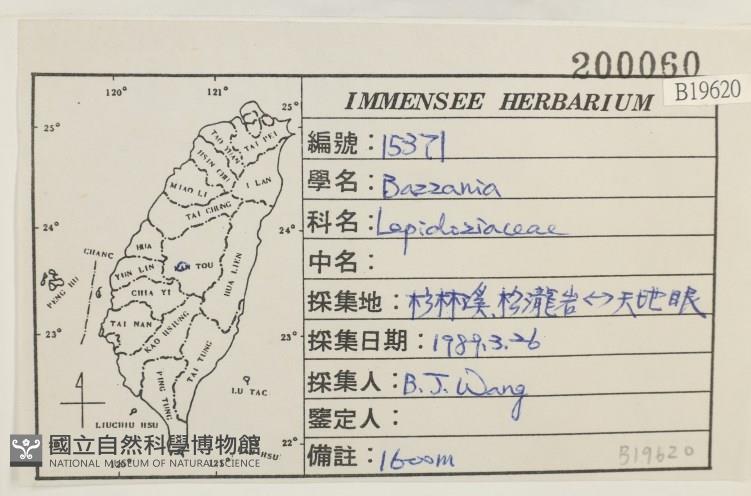 200060
B19620
IMMENSEE HERBARIUM
編號：15371
學名：Bazzania
科名：Lepidoziaceae
中名：
採集地：杉林溪，松瀧岩<->天地眼
採集日期：1989.3.26
採集人：B.J.Wang
鑒定人：
備註：1600m
B19620
120°
121°
25°
25°
TAO YUAN
TAI PEI
HSIN CHU
I LAN
MIAO LI
TAI CHUNG
24°
24°
CHANG HUA
NAN TOU
HUA LIEN
YUN LIN
PENG HU
CHIA YI
TAI NAN
KAO HSIUNG
23°
23°
TAI TUNG
PING TUNG
LU TAO
LIUCHIU HSU
22°
HSU
120°
121°
國立自然科學博物館
NATIONAL MUSEUM OF NATURAL SCIENCE